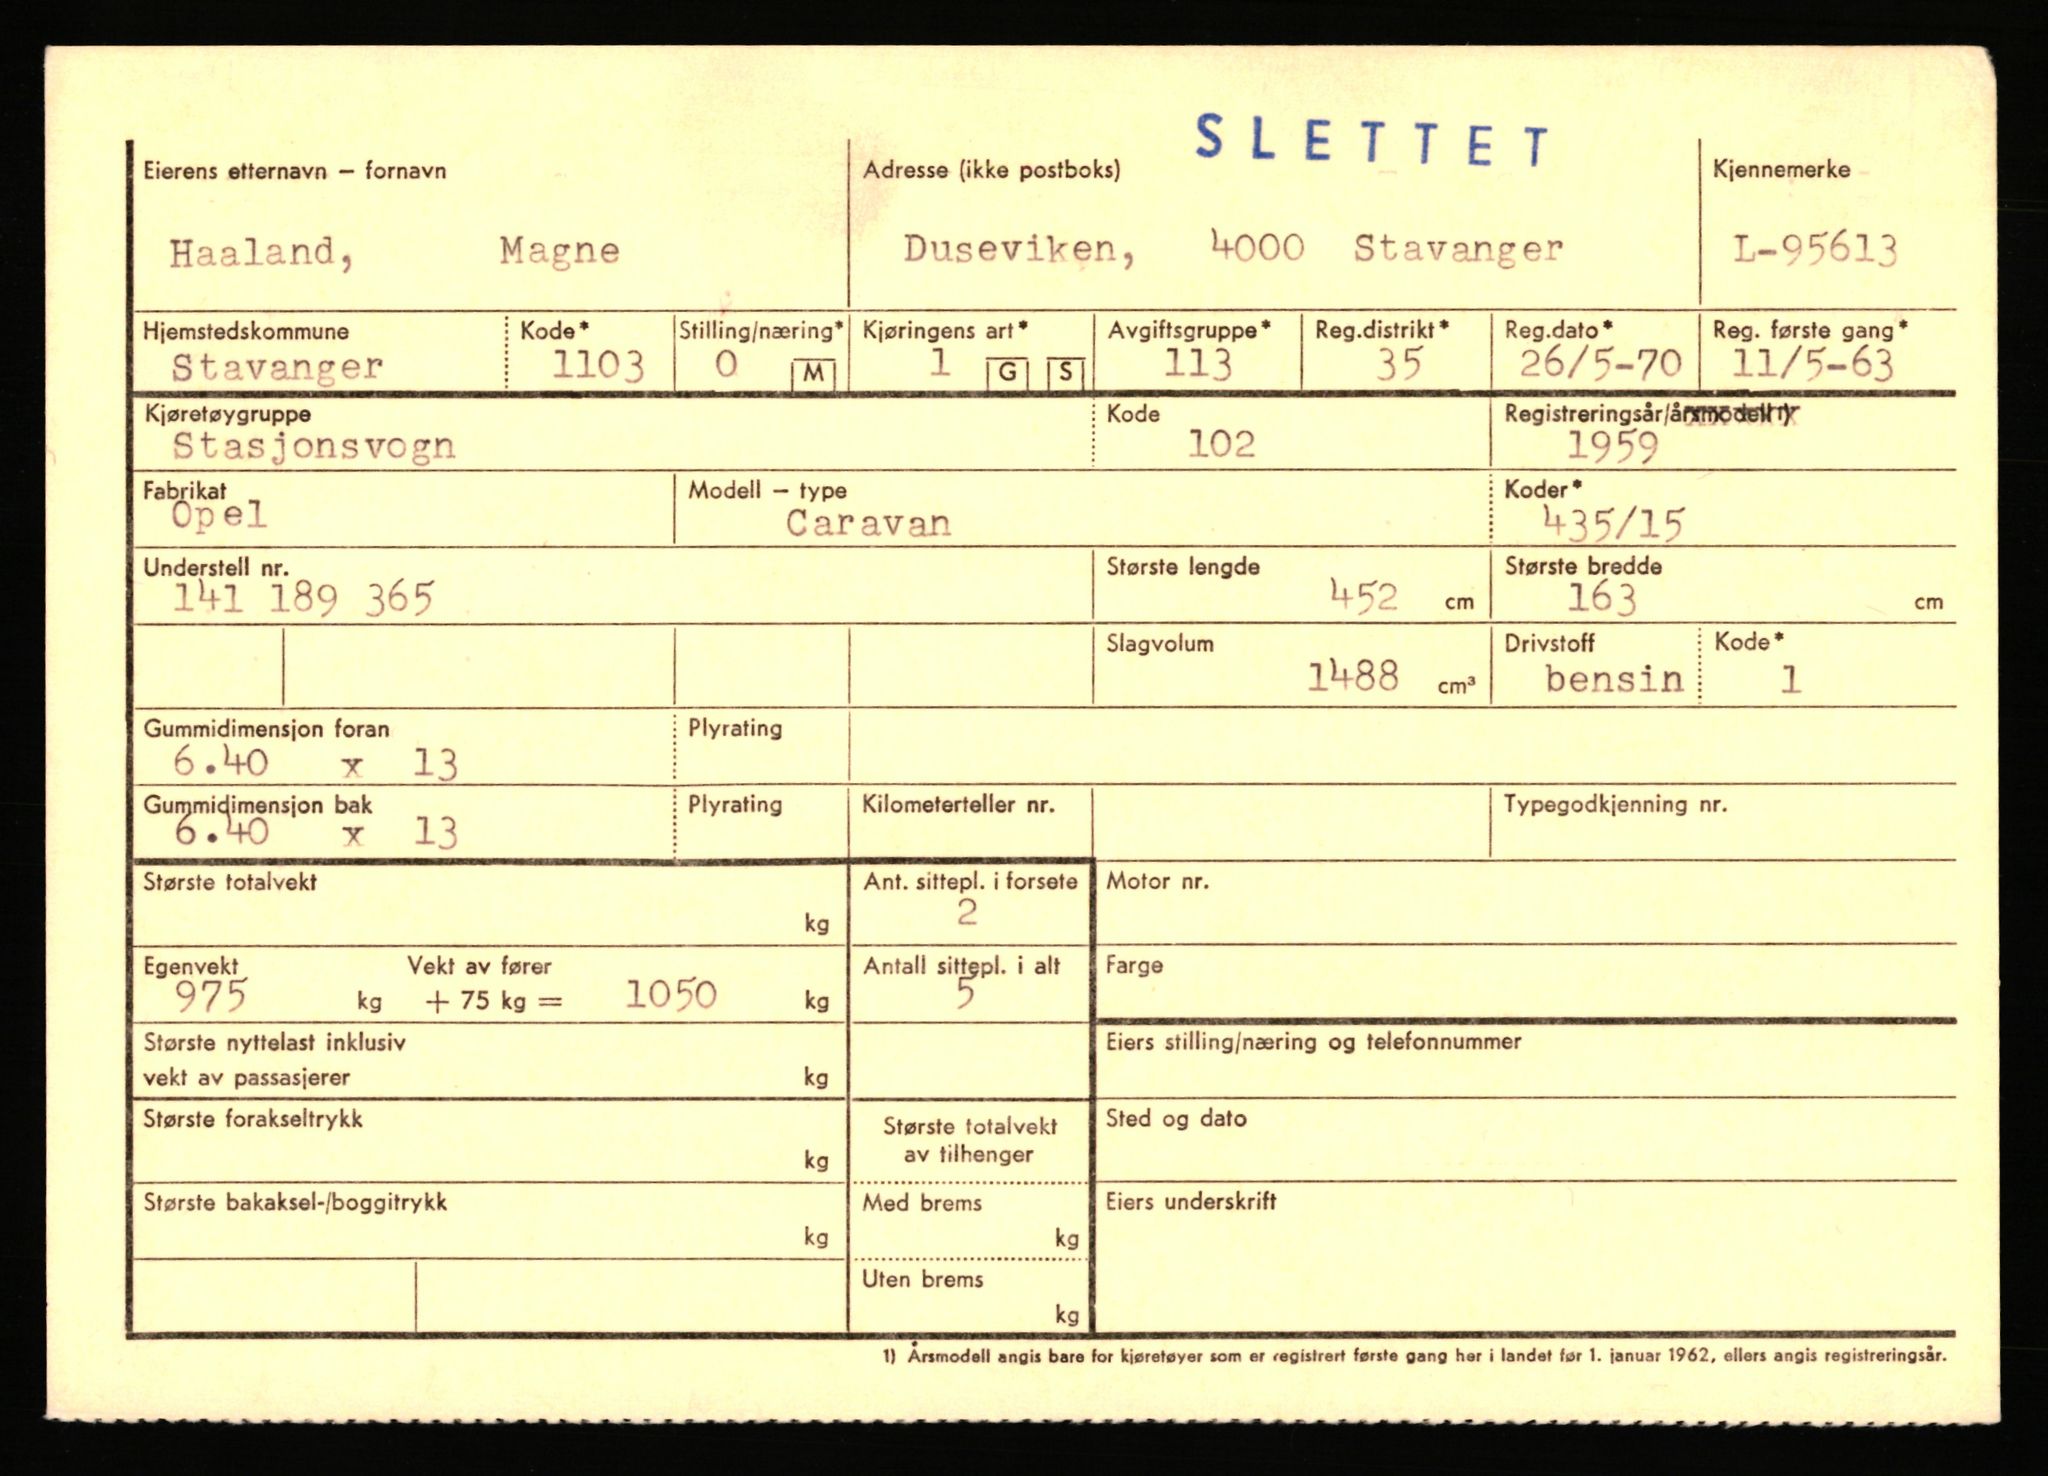 SLETTET
Eierens etternavn – fornavn
Adresse (ikke postboks)
Kjennemerke
Haaland, Magne
Duseviken, 4000 Stavanger
L-95613
Hjemstedskommune
Kode*
Stilling/næring*
Kjøringens art*
Avgiftsgruppe*
Reg.distrikt*
Reg.dato*
Reg. første gang*
Stavanger
1103
0 M
1 G S
113
35
26/5-70
11/5-63
Kjøretøygruppe
Kode
Registreringsår/årsmodell 1)
Stasjonsvogn
102
1959
Fabrikat
Modell – type
Koder*
Opel
Caravan
435/15
Understell nr.
Største lengde
Største bredde
141 189 365
452 cm
163 cm
Slagvolum
Drivstoff
Kode*
1488 cm³
bensin
1
Gummidimensjon foran
Plyrating
6.40 x 13
Gummidimensjon bak
Plyrating
Kilometerteller nr.
Typegodkjenning nr.
6.40 x 13
Største totalvekt
kg
Ant. sittepl. i forsete
2
Motor nr.
Egenvekt
Vekt av fører
975 kg + 75 kg = 1050 kg
Antall sittepl. i alt
5
Farge
Største nyttelast inklusiv
vekt av passasjerer
kg
Eiers stilling/næring og telefonnummer
Største forakseltrykk
kg
Største totalvekt
av tilhenger
Sted og dato
Største bakaksel-/boggitrykk
kg
Med brems
kg
Eiers underskrift
Uten brems
kg
1) Årsmodell angis bare for kjøretøyer som er registrert første gang her i landet før 1. januar 1962, ellers angis registreringsår.